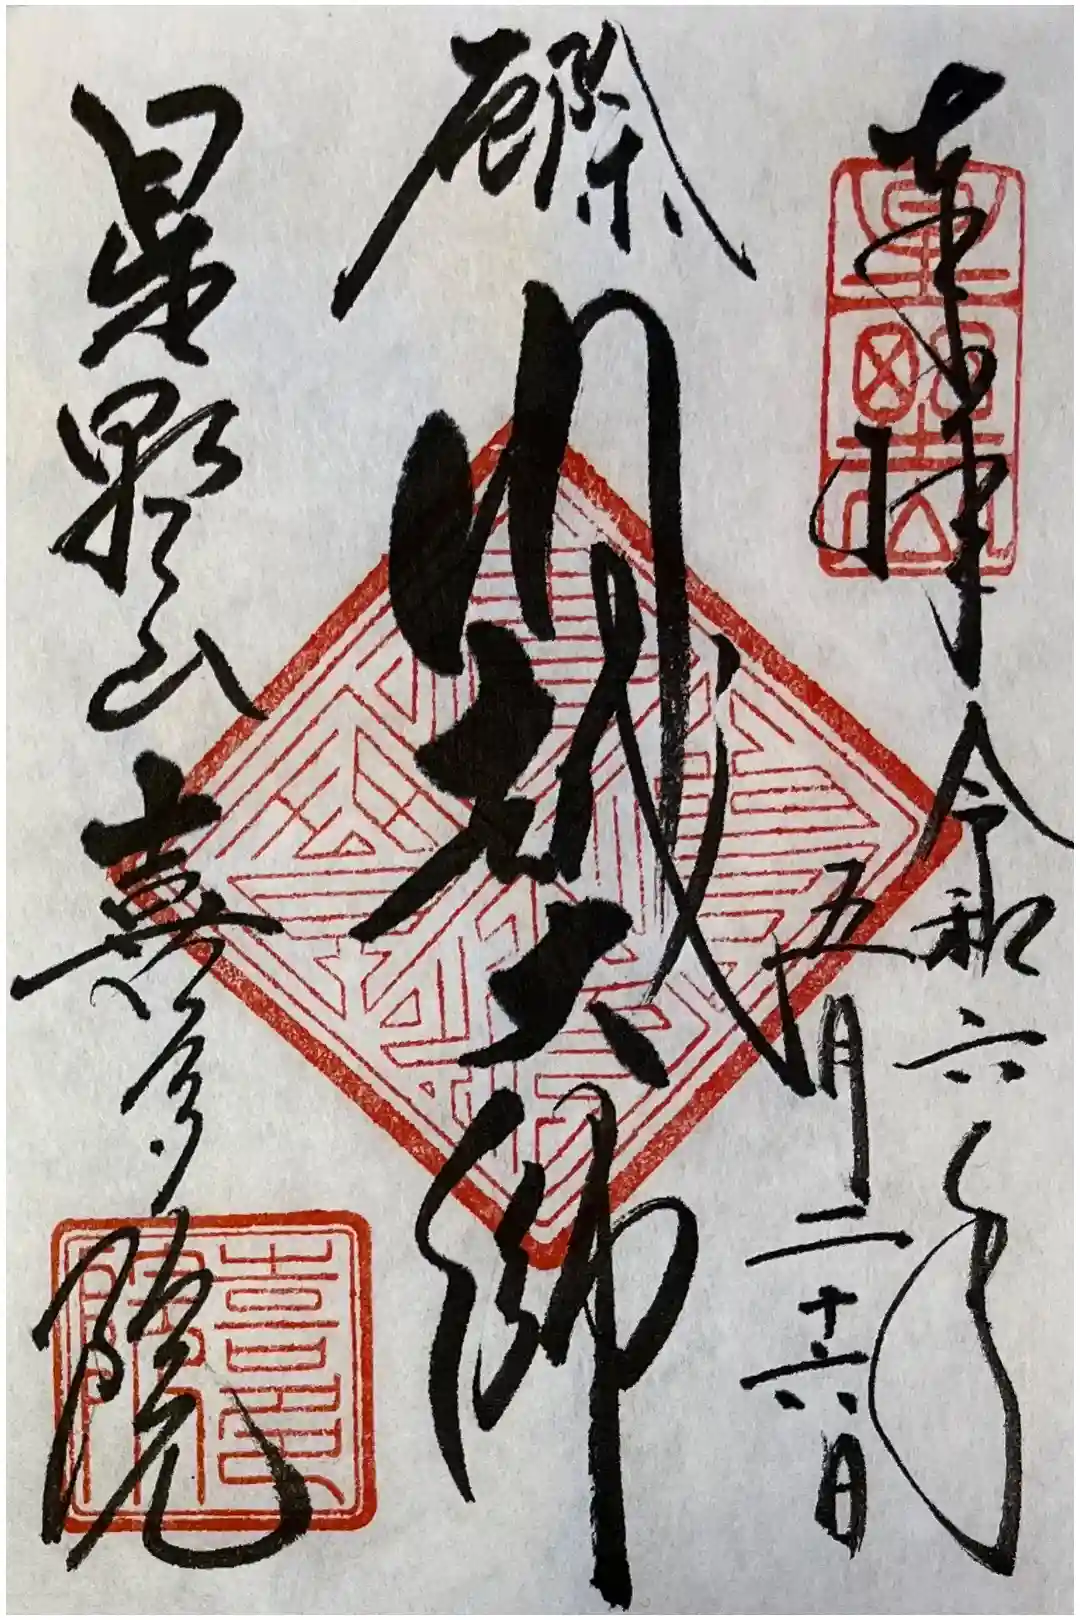 奉拝 令和六年
五月二十六日
厄除
川越大師
星野山 喜多院
喜多院